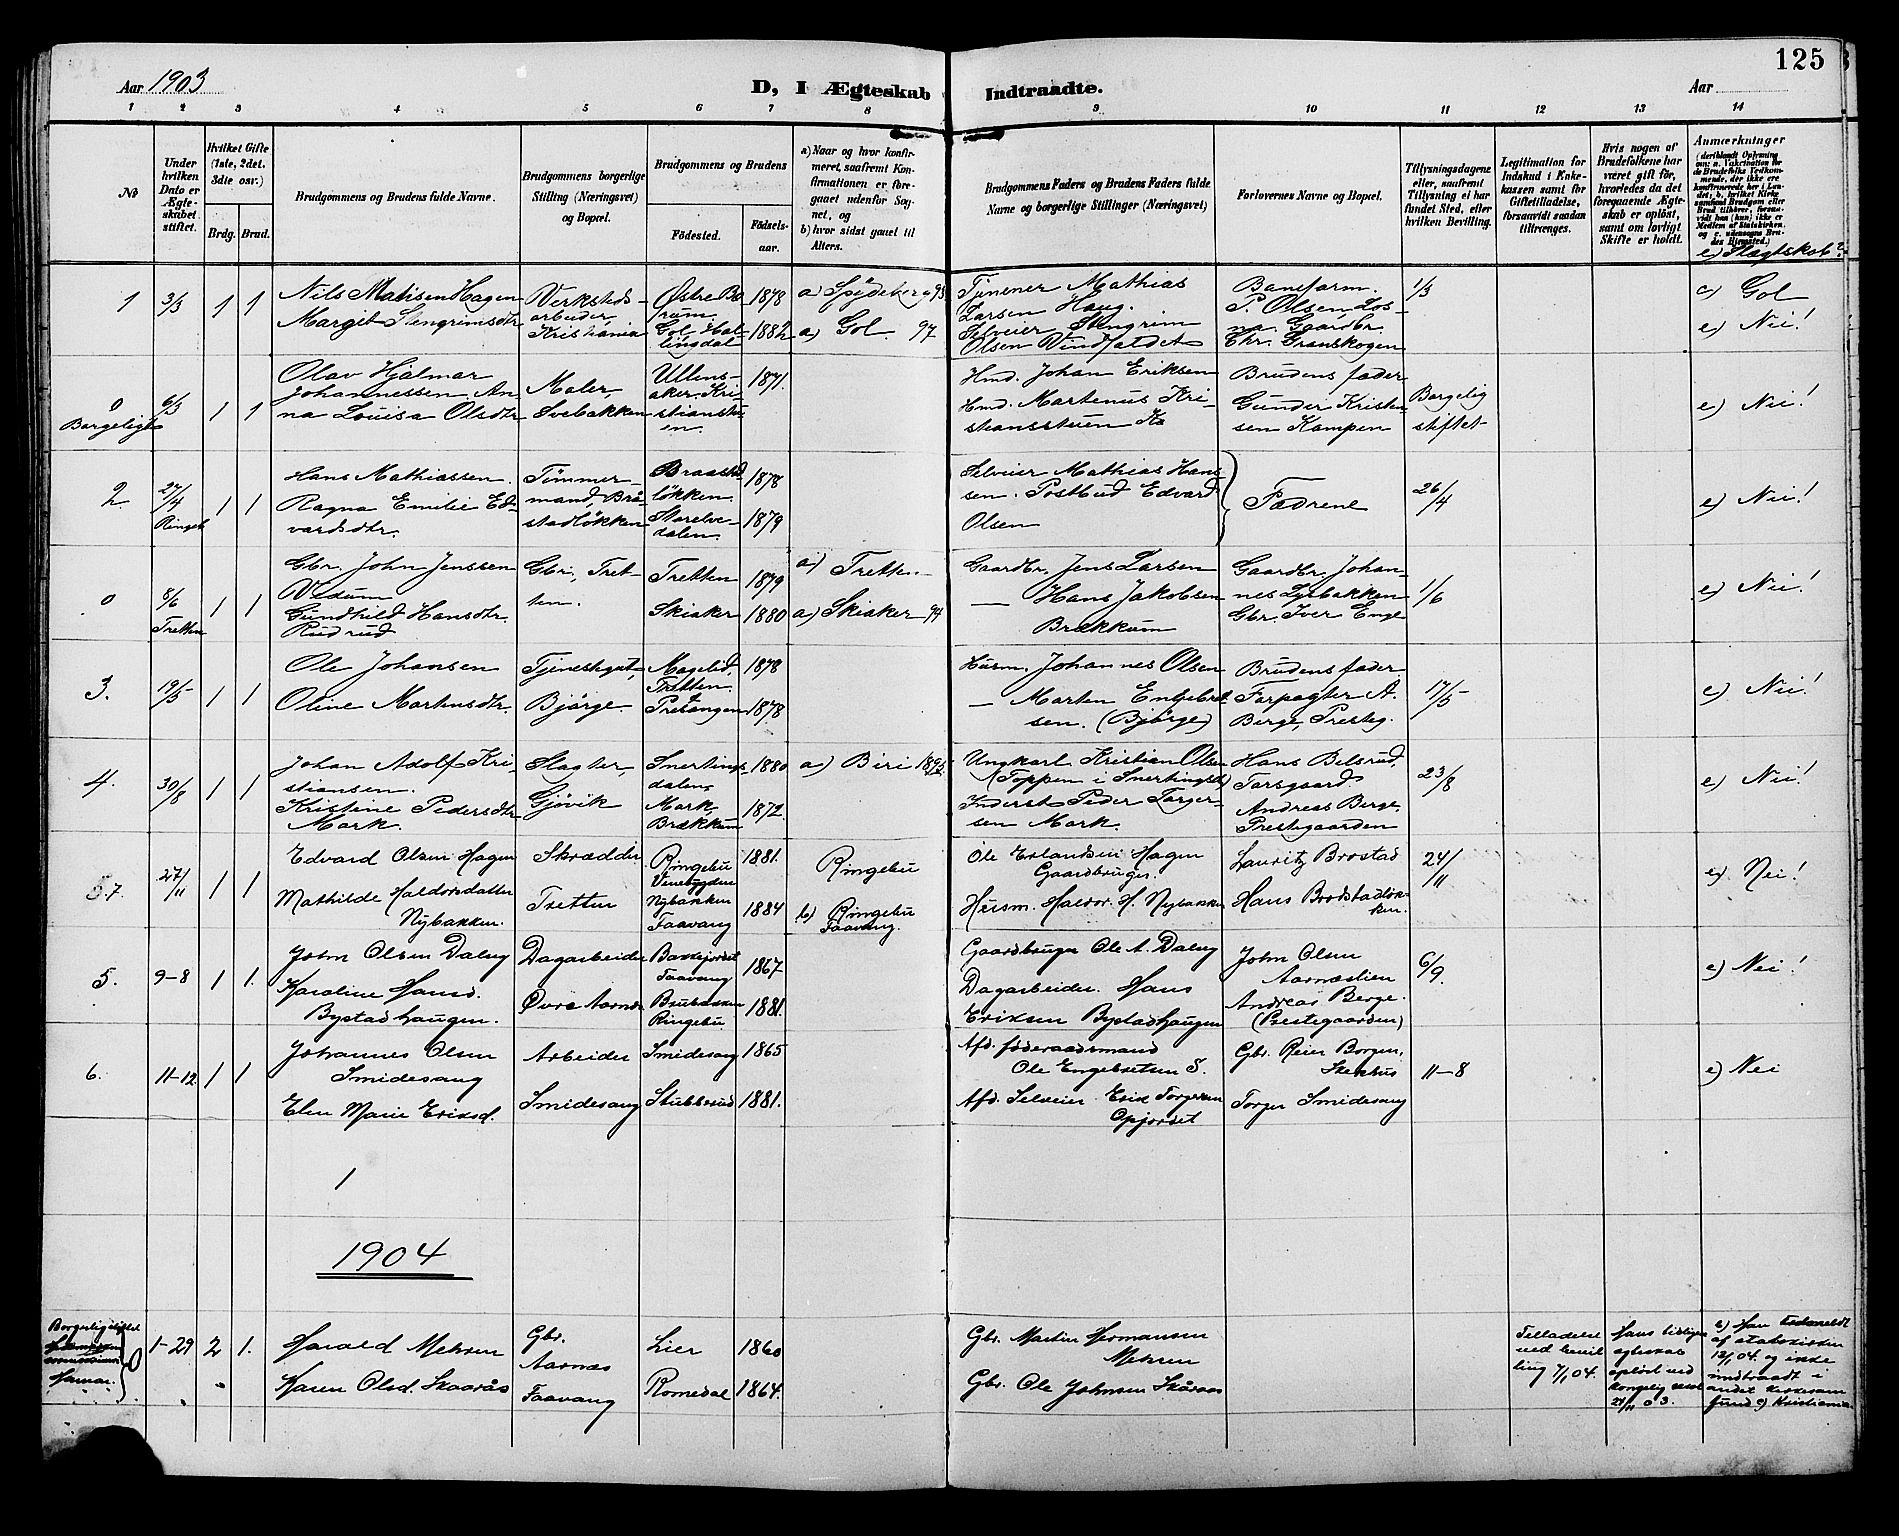 125
Aar 1903
D, I Ægteskab Indtraadte.
Aar
1 2 3 4 5 6 7 8 9 10 11 12 13 14
No
Under hvilken Dato er Ægteskabet stiftet.
Hvilket Gifte (1ste, 2det. 3die osv.)
Brdg. Brud.
Brudgommens og Brudens fulde Navne.
Brudgommens borgerlige Stilling (Næringsvei) og Bopæl.
Brudgommens og Brudens
Födested.
Födselsaar.
a) Naar og hvor konfirmeret, saafremt Konfirmationen er foregaaet udenför Sognet, og
b) hvor sidst gaaet til Alters.
Brudgommens Faders og Brudens Faders fulde Navne og borgerlige Stillinger (Næringsvei)
Forlovernes Navne og Bopæl.
Tillysningsdagene eller, saafremt Tillysning ei har fundet Sted, efter hvilken Bevilling.
Legitimation for Indskud i Enkekassen samt for Giftetilladelse, forsaavidt saadan tiltrænges.
Hvis nogen af Brudefolkene har været gift för, hvorledes da det foregaaende Ægteskab er oplöst, samt om lovligt Skifte er holdt.
Anmærkninger
e) Slægtskab?
1
3/3
1 1
Nils Matisen Hagen
Margit Stengrimsdtr
Verkstedsarbeider, Kristiania
1878
Gol, Hallingdal 1882
a) Spydeberg 93
a) Gol. 97
Tjenener Mathias
Larsen Haug.
Selveier Stengrim
Olsen Vindfaldet
Baneform.
P. Olsen Losna. Gaardbr.
Chr. Granskogen
1/3
c) Gol
e) Nei!
0
Borgeligt
6/3
1 1
Olav Hjalmar
Johannessen. Anna Lovisa Olsdtr
Maler,
Svebakken
Ullensaker. Kristianstuen.
1871.
Hmd. Johan Eriksen
Hmd. Martenus Kristiansstuen
Brudens fader
Gunder Kristensen Kampen
Borgelig
stiftet
e) Nei!
2.
27/4
Ringeb
1 1
Hans Mathiassen.
Ragna Emilie Edvardsdtr.
Tömmermand, Bråstadlökken
Braastadlökken. 1878
Storelvedalen. 1879
Selveier Mathias Hansen. Postbud Edvard
Olsen
Fædrene
26/4
e) Nei!
0
8/6
Tretten
1 1
Gbr. John Jenssen
Gunhild Hansdtr.
Rudrud
Gbr., Tretten.
Tretten 1879
Skiaker 1880
a) Tretten
a) Skiaker 94
Gaardbr. Jens Larsen
— Hans Jakobsen
Brækkum
Gaardbr. Johannes Lysbakken
Gbr. Iver Enge
1/6
e) Nei!
3.
19/5
1 1
Ole Johansen
Oline Martensdtr.
Tjenestegut,
Bjørge.
Magelid, Tretten. 1878
1878
Husm. Johannes Olsen
— Marten Engebretsen. (Bjørge)
Brudens fader
Forpagter A.
Berge, Presteg.
17/5
e) Nei!
4.
30/8
1 1
Johan Adolf Kristiansen.
Kristine Pedersdtr
Mork.
Slagter,
Gjövik
Snertingsdalen, 1880
Mork, Brækkum 1872.
a) Biri
Ungkarl Kristian Olsen
(Toppen i Snertingsd.)
Inderst Peder Torgersen Mork.
Hans Belsrud,
Torsgaard.
Andreas Berge,
Prestegaarden
23/8
e) Nei!
7.
27/11
1 1
Edvard Olsen Hagen
Mathilde Haldorsdatter
Nybakken.
Skrædder
Tretten
Ringebu
Venebygden 1881.
Nybakken
Faavang 1884
Ringebu
b) Ringebu
Faavang.
Ole Erlandsen Hagen
Gaardbruger
Husm. Haldor H. Nybakken
Lauritz Brostad
Hans Brodstadløkken.
24/11
e) Nei!
5.
9-8
1 1.
John Olsen Dalseg
Karoline Hansd.
Bystadhaugen.
Dagarbeider
Øvre Aarnæs
Bakkejordet
Faavang 1867
Brubakken
Ringebu 1881.
Gaardbruger Ole A. Dalseg
Dagarbeider. Hans
Eriksen Bystadhaugen
John Olsen
Aarnæslien
Andreas Berge.
(Prestegaarden)
6/9.
e) Nei!
6.
11-12
1 1
Johannes Olsen
Smidesang
Elen Marie Eriksd.
Arbeider
Smidesang
Smidesang 1865
Stubbrud 1881.
Afd. föderaadsmand
Ole Engebretsen S.
Afd. Selveier Erik Torgersen
Opjordet
Gbr. Reier Borgen,
Stenhus
Torger Smidesang
11-8
e) Nei
1
1904
Borgerligstiftet
Hamar.
0
1-29
2 1.
Harald Mehren
Karen Olsd. Skaarås
Gbr.
Aarnæs
Faavang
Lier 1860
Romedal 1864.
Gbr. Martin Hermansen
Mehren
Gbr. Ole Johnsen Skåraas
Tilladelse
ved bevilling 7/1 04.
Hans tidligere
egteskab
opløst ved
kongelig resol
21/11 03.
b) Han udmeldt
af statskirken
12/1 04. og ikke
indtraadt i
andet kirkesamfund c) Kristiania.